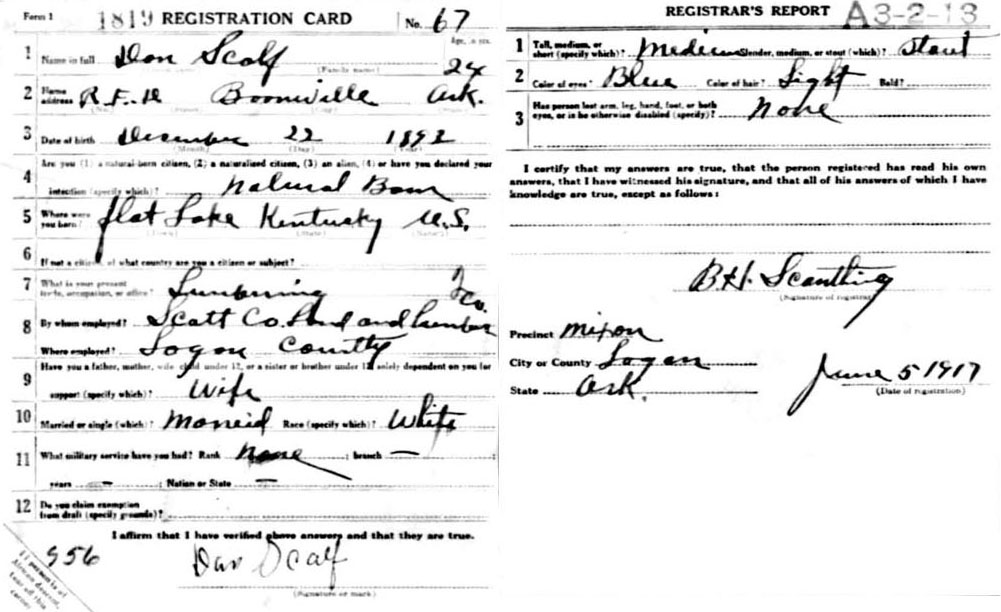 Form 1 1819 REGISTRATION CARD No. 67
1 Name in full Don Scalf (Family name) Age, in yrs. 24
2 Home address R.F.D Boonville Ark.
3 Date of birth December 22 1892
(Month) (Day) (Year)
Are you (1) a natural-born citizen, (2) a naturalized citizen, (3) an alien, (4) or have you declared your
4 intention (specify which)? Natural Born
5 Where were you born? flat Lake Kentucky U.S.
(Town) (State) (Nation)
6 If not a citizen, of what country are you a citizen or subject?
7 What is your present trade, occupation, or office? Lumbering
8 By whom employed? Scott Co. Land and Lumber Co.
Where employed? Logan County
Have you a father, mother, wife, child under 12, or a sister or brother under 12, solely dependent on you for
9 support (specify which)? Wife
10 Married or single (which)? Maneid Race (specify which)? White
11 What military service have you had? Rank None ; branch — ;
years — ; Nation or State —
12 Do you claim exemption from draft (specify grounds)?
I affirm that I have verified above answers and that they are true.
956
Dan Scalf
(Signature or mark)
If person is of African descent, tear off this corner.
REGISTRAR'S REPORT A3-2-13
1 Tall, medium, or short (specify which)? Medium Slender, medium, or stout (which)? Stout
2 Color of eyes? Blue Color of hair? Light Bald?
3 Has person lost arm, leg, hand, foot, or both eyes, or is he otherwise disabled (specify)? None
I certify that my answers are true, that the person registered has read his own
answers, that I have witnessed his signature, and that all of his answers of which I have
knowledge are true, except as follows:
B.H. Scantling
(Signature of registrar)
Precinct Mixon
City or County Logan
State Ark.
June 5 1917
(Date of registration)